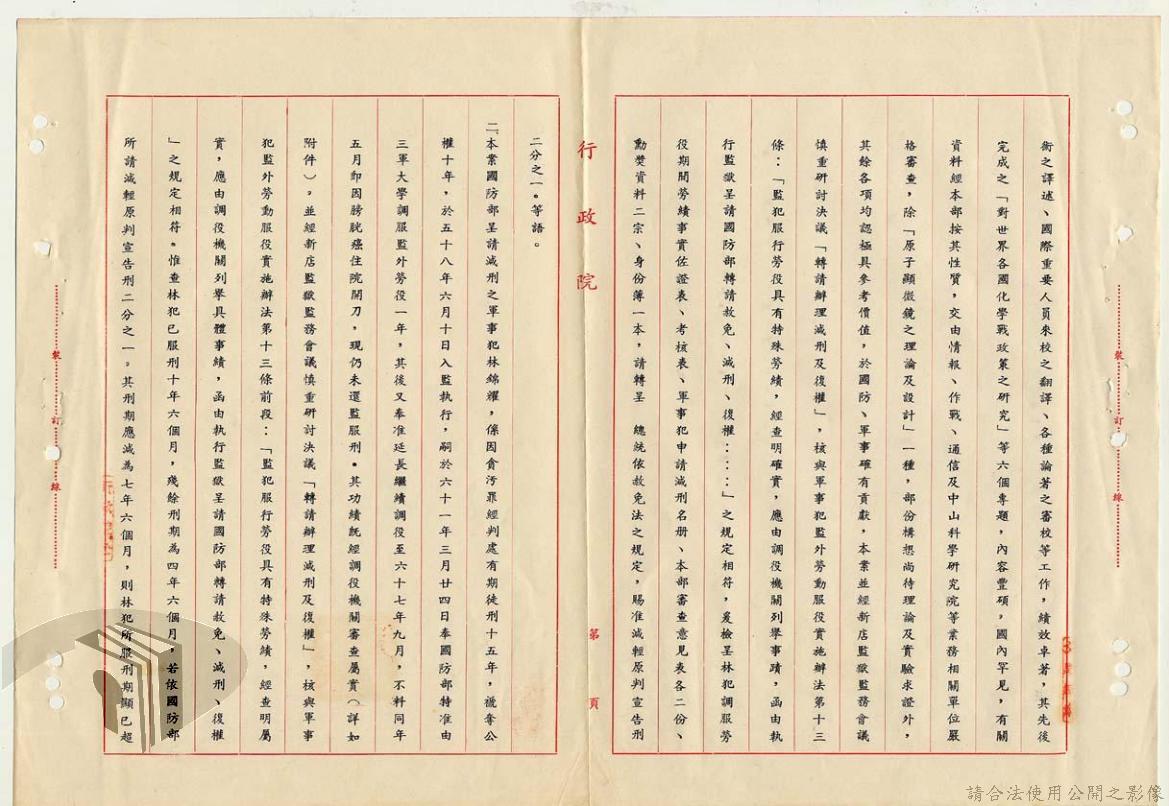 術之譯述、國際重要人員來校之翻譯、各種論著之審校等工作，績效卓著，其先後
完成之「對世界各國化學戰政策之研究」等六個專題，內容豐碩，國內罕見，有關
資料經本部按其性質，交由情報、作戰、通信及中山科學研究院等業務相關單位嚴
格審查，除「原子顯微鏡之理論及設計」一種，部份構想尚待理論及實驗求證外，
其餘各項均認極具參考價值，於國防、軍事確有貢獻，本案並經新店監獄監務會議
慎重研討決議「轉請辦理減刑及復權」，核與軍事犯監外勞動服役實施辦法第十三
條：「監犯服行勞役具有特殊勞績，經查明確實，應由調役機關列舉事蹟，函由執
行監獄呈請國防部轉請赦免、減刑、復權：：：」之規定相符，爰檢呈林犯調服勞
役期間勞績事實佐證表、考核表、軍事犯申請減刑名册、本部審查意見表各二份、
勳奬資料二宗、身份簿一本，請轉呈　總統依赦免法之規定，賜准減輕原判宣告刑
行政院
第　頁
二分之一。等語。
二、本案國防部呈請減刑之軍事犯林錦耀，係因貪污罪經判處有期徒刑十五年，褫奪公
權十年，於五十八年六月十日入監執行，嗣於六十一年三月廿四日奉國防部特准由
三軍大學調服監外勞役一年，其後又奉准延長繼續調役至六十七年九月，不料同年
五月即因膀胱癌住院開刀，現仍未還監服刑。其功績既經調役機關審查屬實（詳如
附件）。並經新店監獄監務會議慎重研討決議「轉請辦理減刑及復權」，核與軍事
犯監外勞動服役實施辦法第十三條前段：「監犯服行勞役具有特殊勞績，經查明屬
實，應由調役機關列舉具體事績，函由執行監獄呈請國防部轉請赦免、減刑、復權
」之規定相符。惟查林犯已服刑十年六個月，殘餘刑期為四年六個月，若依國防部
所請減輕原判宣告刑二分之一。其刑期應減為七年六個月，則林犯所服刑期顯已超
裝
訂
線
裝
訂
線
請合法使用公開之影像